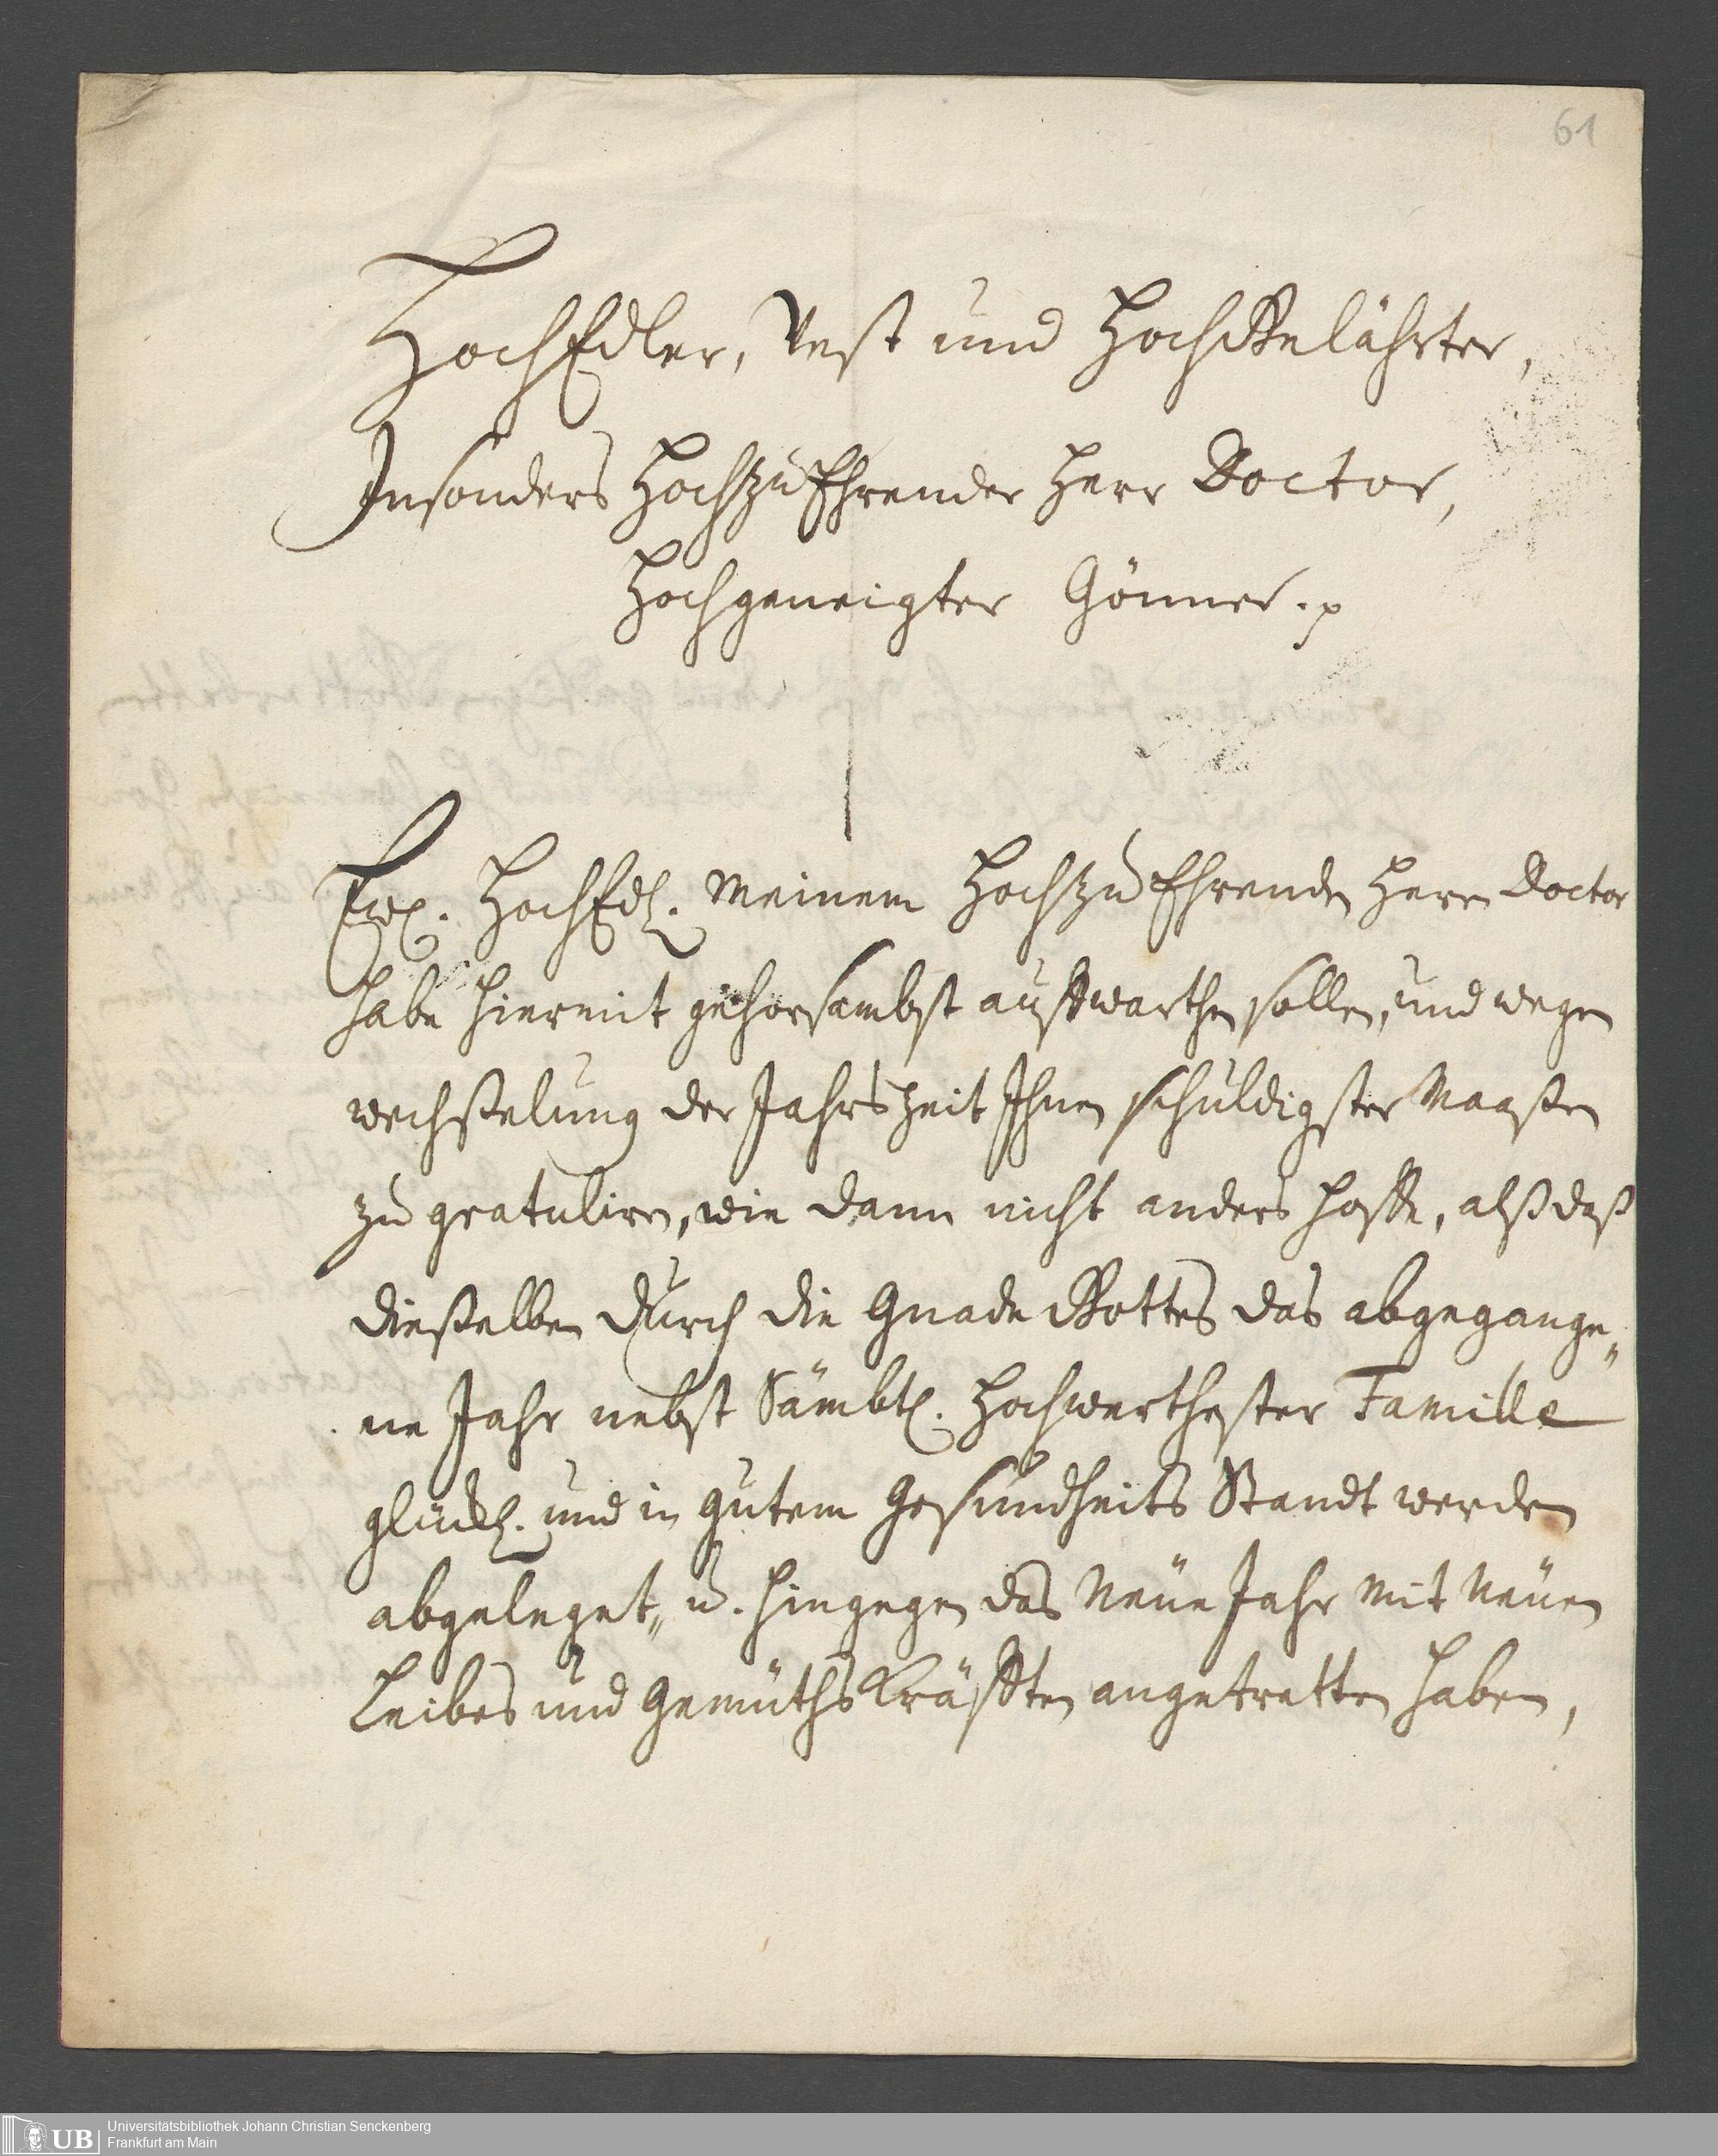 61
HochEdler, Vest und HochGelährter,
Insonders HochzuEhrender Herr Doctor,
Hochgeneigter Gönner. p
Ew. HochEdl. Meinem HochzuEhrenden Herrn Doctor
habe hiermit gehorsambst auffwarthen sollen, und wegen
wechßelung der Jahrszeit Ihnen schuldigster Maaßen
zu gratuliren, wie dann nicht anders hoffe, alß daß
dießelben durch die Gnade Gottes das abgegange„
ne Jahr nebst Sämbtl. Hochwerthester Famille
glückl. und in gutem Gesundheits Standt werden
abgeleget, u. hingegen das Neüe Jahr Mit Neüen
Leibes und GemüthsKräfften angetretten haben,
UB
Universitätsbibliothek Johann Christian Senckenberg
Frankfurt am Main